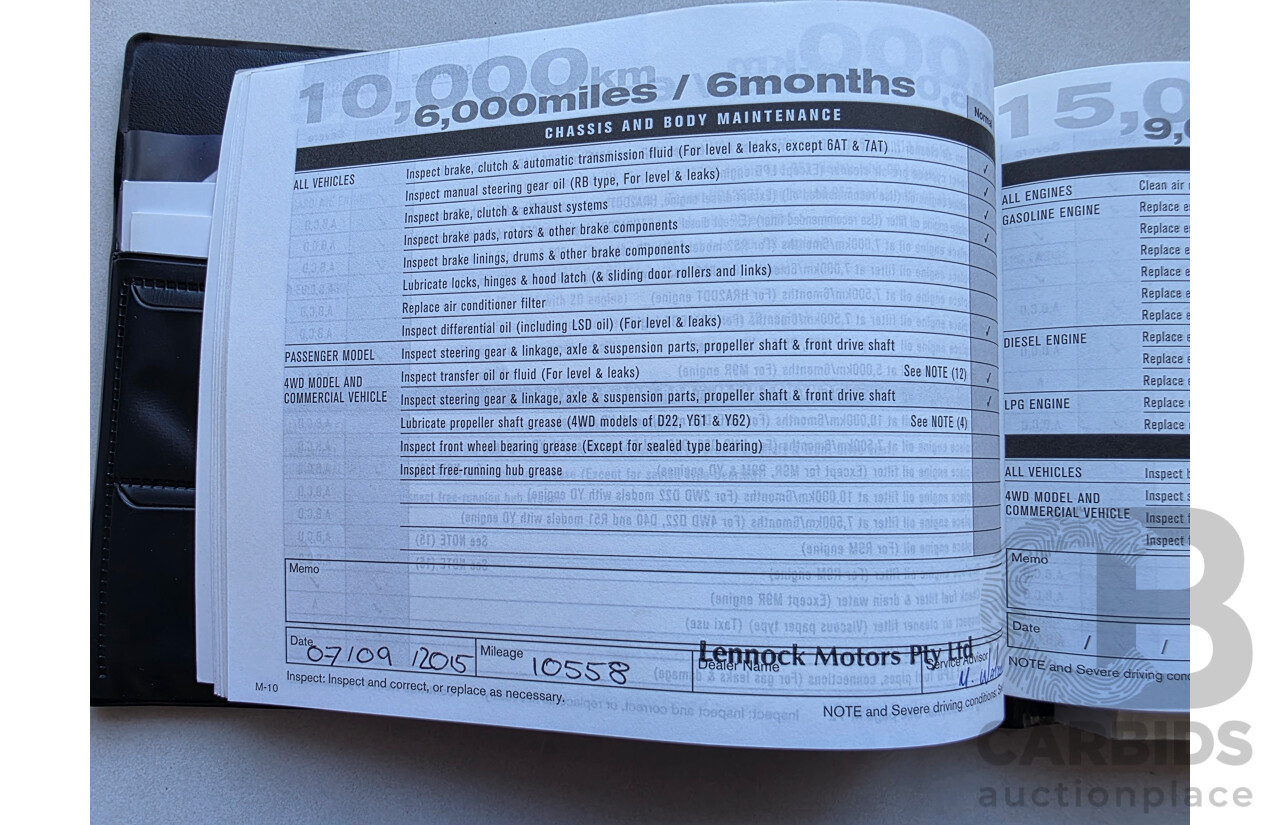 10,000km
6,000miles / 6months
CHASSIS AND BODY MAINTENANCE
Normal
ALL VEHICLES
Inspect brake, clutch & automatic transmission fluid (For level & leaks, except 6AT & 7AT) ✓
Inspect manual steering gear oil (RB type, For level & leaks) ✓
Inspect brake, clutch & exhaust systems ✓
Inspect brake pads, rotors & other brake components ✓
Inspect brake linings, drums & other brake components
Lubricate locks, hinges & hood latch (& sliding door rollers and links)
Replace air conditioner filter
Inspect differential oil (including LSD oil) (For level & leaks) ✓
PASSENGER MODEL
Inspect steering gear & linkage, axle & suspension parts, propeller shaft & front drive shaft
4WD MODEL AND
COMMERCIAL VEHICLE
Inspect transfer oil or fluid (For level & leaks) See NOTE (12) ✓
Inspect steering gear & linkage, axle & suspension parts, propeller shaft & front drive shaft ✓
Lubricate propeller shaft grease (4WD models of D22, Y61 & Y62) See NOTE (4)
Inspect front wheel bearing grease (Except for sealed type bearing)
Inspect free-running hub grease
Memo
Date 07/09/2015
Mileage 10558
Lennock Motors Pty Ltd
Dealer Name
Service Advisor
M.
M-10
Inspect: Inspect and correct, or replace as necessary.
NOTE and Severe driving conditions
15,0
9,0
ALL ENGINES
Clean air
GASOLINE ENGINE
Replace
Replace
Replace
Replace
Replace
Replace
DIESEL ENGINE
Replace
Replace
Replace
LPG ENGINE
Replace
Replace
ALL VEHICLES
Inspect
4WD MODEL AND
COMMERCIAL VEHICLE
Inspect
Inspect
Inspect
Memo
Date / /
NOTE and Severe driving
CB
CARBIDS
auctionplace